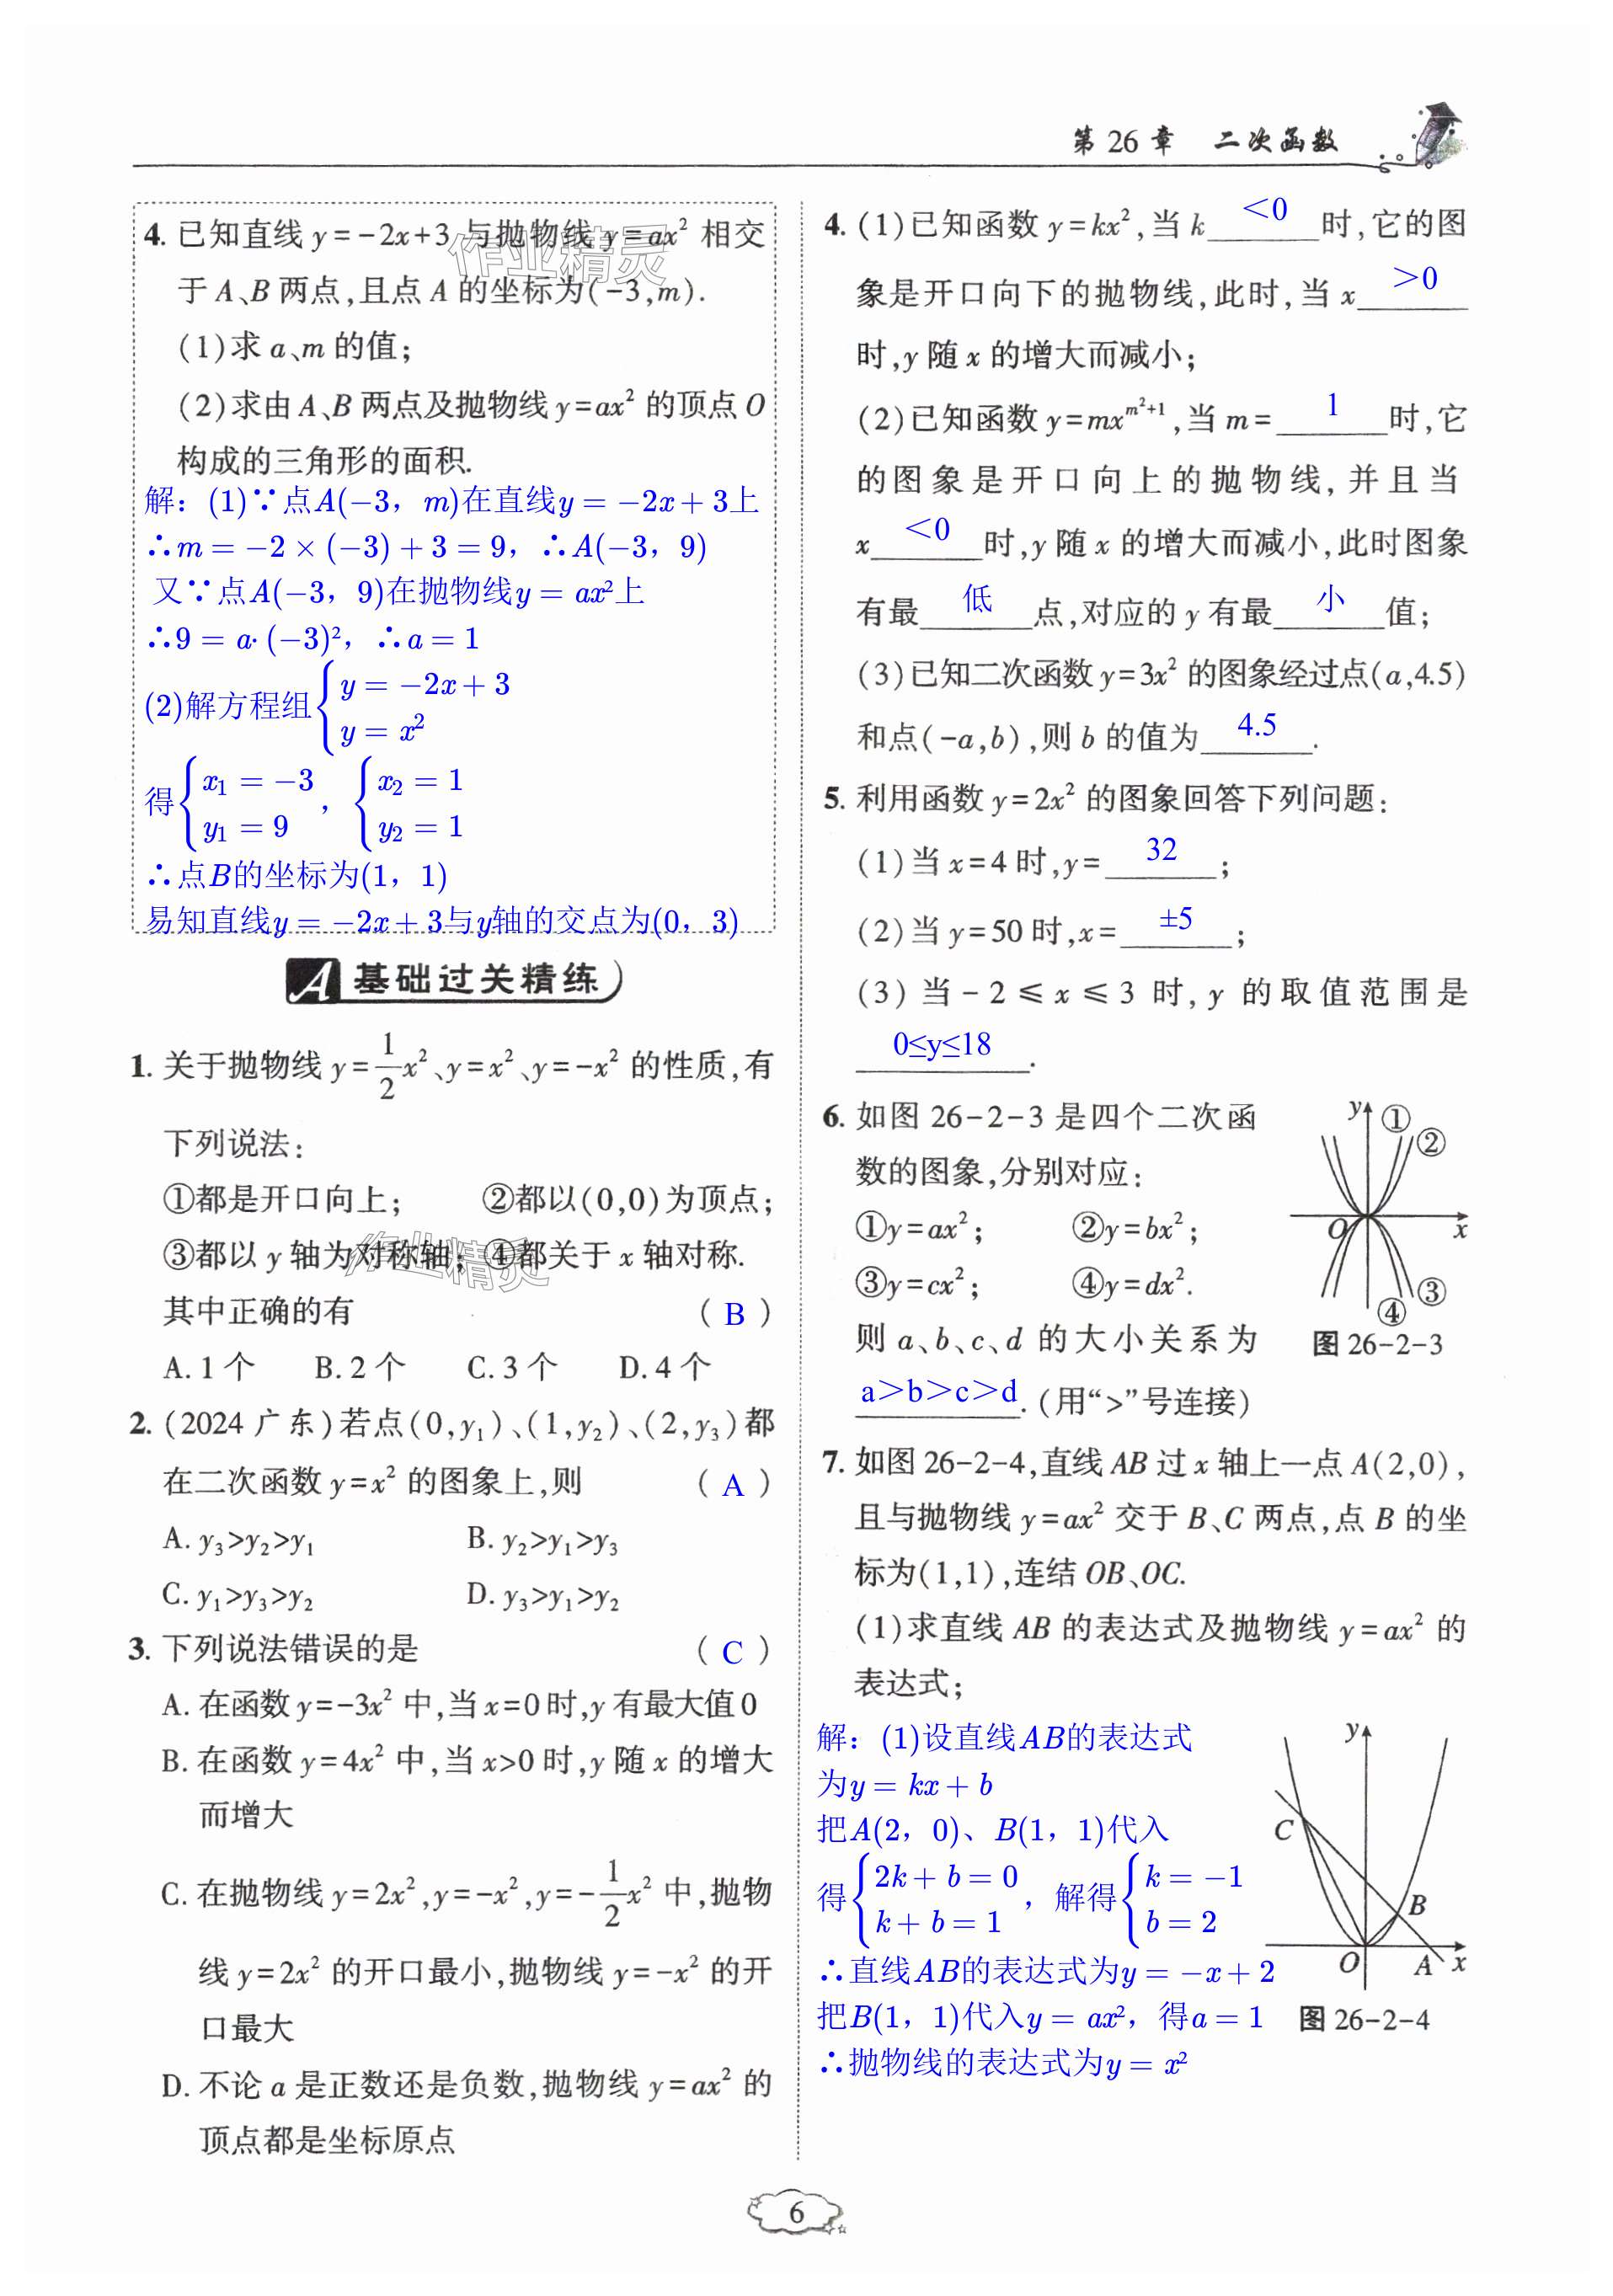 第 26 章 二次函数
4. 已知直线 y=-2x+3 与抛物线 y=ax² 相交
于 A、B 两点,且点 A 的坐标为(-3,m).
(1)求 a、m 的值;
(2)求由 A、B 两点及抛物线 y=ax² 的顶点 O
构成的三角形的面积.
解：(1)∵点A(−3，m)在直线y = −2x + 3上
∴m = −2 × (−3) + 3 = 9，∴A(−3，9)
又∵点A(−3，9)在抛物线y = ax²上
∴9 = a· (−3)²，∴a = 1
(2)解方程组{y = −2x + 3
y = x²
得{x₁ = −3
y₁ = 9 ，{x₂ = 1
y₂ = 1
∴点B的坐标为(1，1)
易知直线y = −2x + 3与y轴的交点为(0，3)
A 基础过关精练
1. 关于抛物线 y=1/2x²、y=x²、y=-x² 的性质,有
下列说法:
①都是开口向上; ②都以(0,0)为顶点;
③都以 y 轴为对称轴; ④都关于 x 轴对称.
其中正确的有 ( B )
A. 1 个 B. 2 个 C. 3 个 D. 4 个
2. (2024 广东)若点(0,y₁)、(1,y₂)、(2,y₃)都
在二次函数 y=x² 的图象上,则 ( A )
A. y₃>y₂>y₁ B. y₂>y₁>y₃
C. y₁>y₃>y₂ D. y₃>y₁>y₂
3. 下列说法错误的是 ( C )
A. 在函数 y=-3x² 中,当 x=0 时,y 有最大值 0
B. 在函数 y=4x² 中,当 x>0 时,y 随 x 的增大
而增大
C. 在抛物线 y=2x²,y=-x²,y=-1/2x² 中,抛物
线 y=2x² 的开口最小,抛物线 y=-x² 的开
口最大
D. 不论 a 是正数还是负数,抛物线 y=ax² 的
顶点都是坐标原点
4. (1)已知函数 y=kx²,当 k <0 时,它的图
象是开口向下的抛物线,此时,当 x >0
时,y 随 x 的增大而减小;
(2)已知函数 y=mx^(m²+1),当 m= 1 时,它
的图象是开口向上的抛物线,并且当
x <0 时,y 随 x 的增大而减小,此时图象
有最 低 点,对应的 y 有最 小 值;
(3)已知二次函数 y=3x² 的图象经过点(a,4.5)
和点(-a,b),则 b 的值为 4.5 .
5. 利用函数 y=2x² 的图象回答下列问题:
(1)当 x=4 时,y= 32 ;
(2)当 y=50 时,x= ±5 ;
(3)当-2≤x≤3 时,y 的取值范围是
0≤y≤18 .
6. 如图 26-2-3 是四个二次函
数的图象,分别对应:
①y=ax²; ②y=bx²;
③y=cx²; ④y=dx².
则 a、b、c、d 的大小关系为
a>b>c>d .(用“>”号连接)
y ① ② O x ③ ④
图 26-2-3
7. 如图 26-2-4,直线 AB 过 x 轴上一点 A(2,0),
且与抛物线 y=ax² 交于 B、C 两点,点 B 的坐
标为(1,1),连结 OB、OC.
(1)求直线 AB 的表达式及抛物线 y=ax² 的
表达式;
解：(1)设直线AB的表达式
为y = kx + b
把A(2，0)、B(1，1)代入
得{2k + b = 0
k + b = 1 ，解得{k = −1
b = 2
∴直线AB的表达式为y = −x + 2
把B(1，1)代入y = ax²，得a = 1
∴抛物线的表达式为y = x²
y C B O A x
图 26-2-4
6
作业精灵
作业精灵